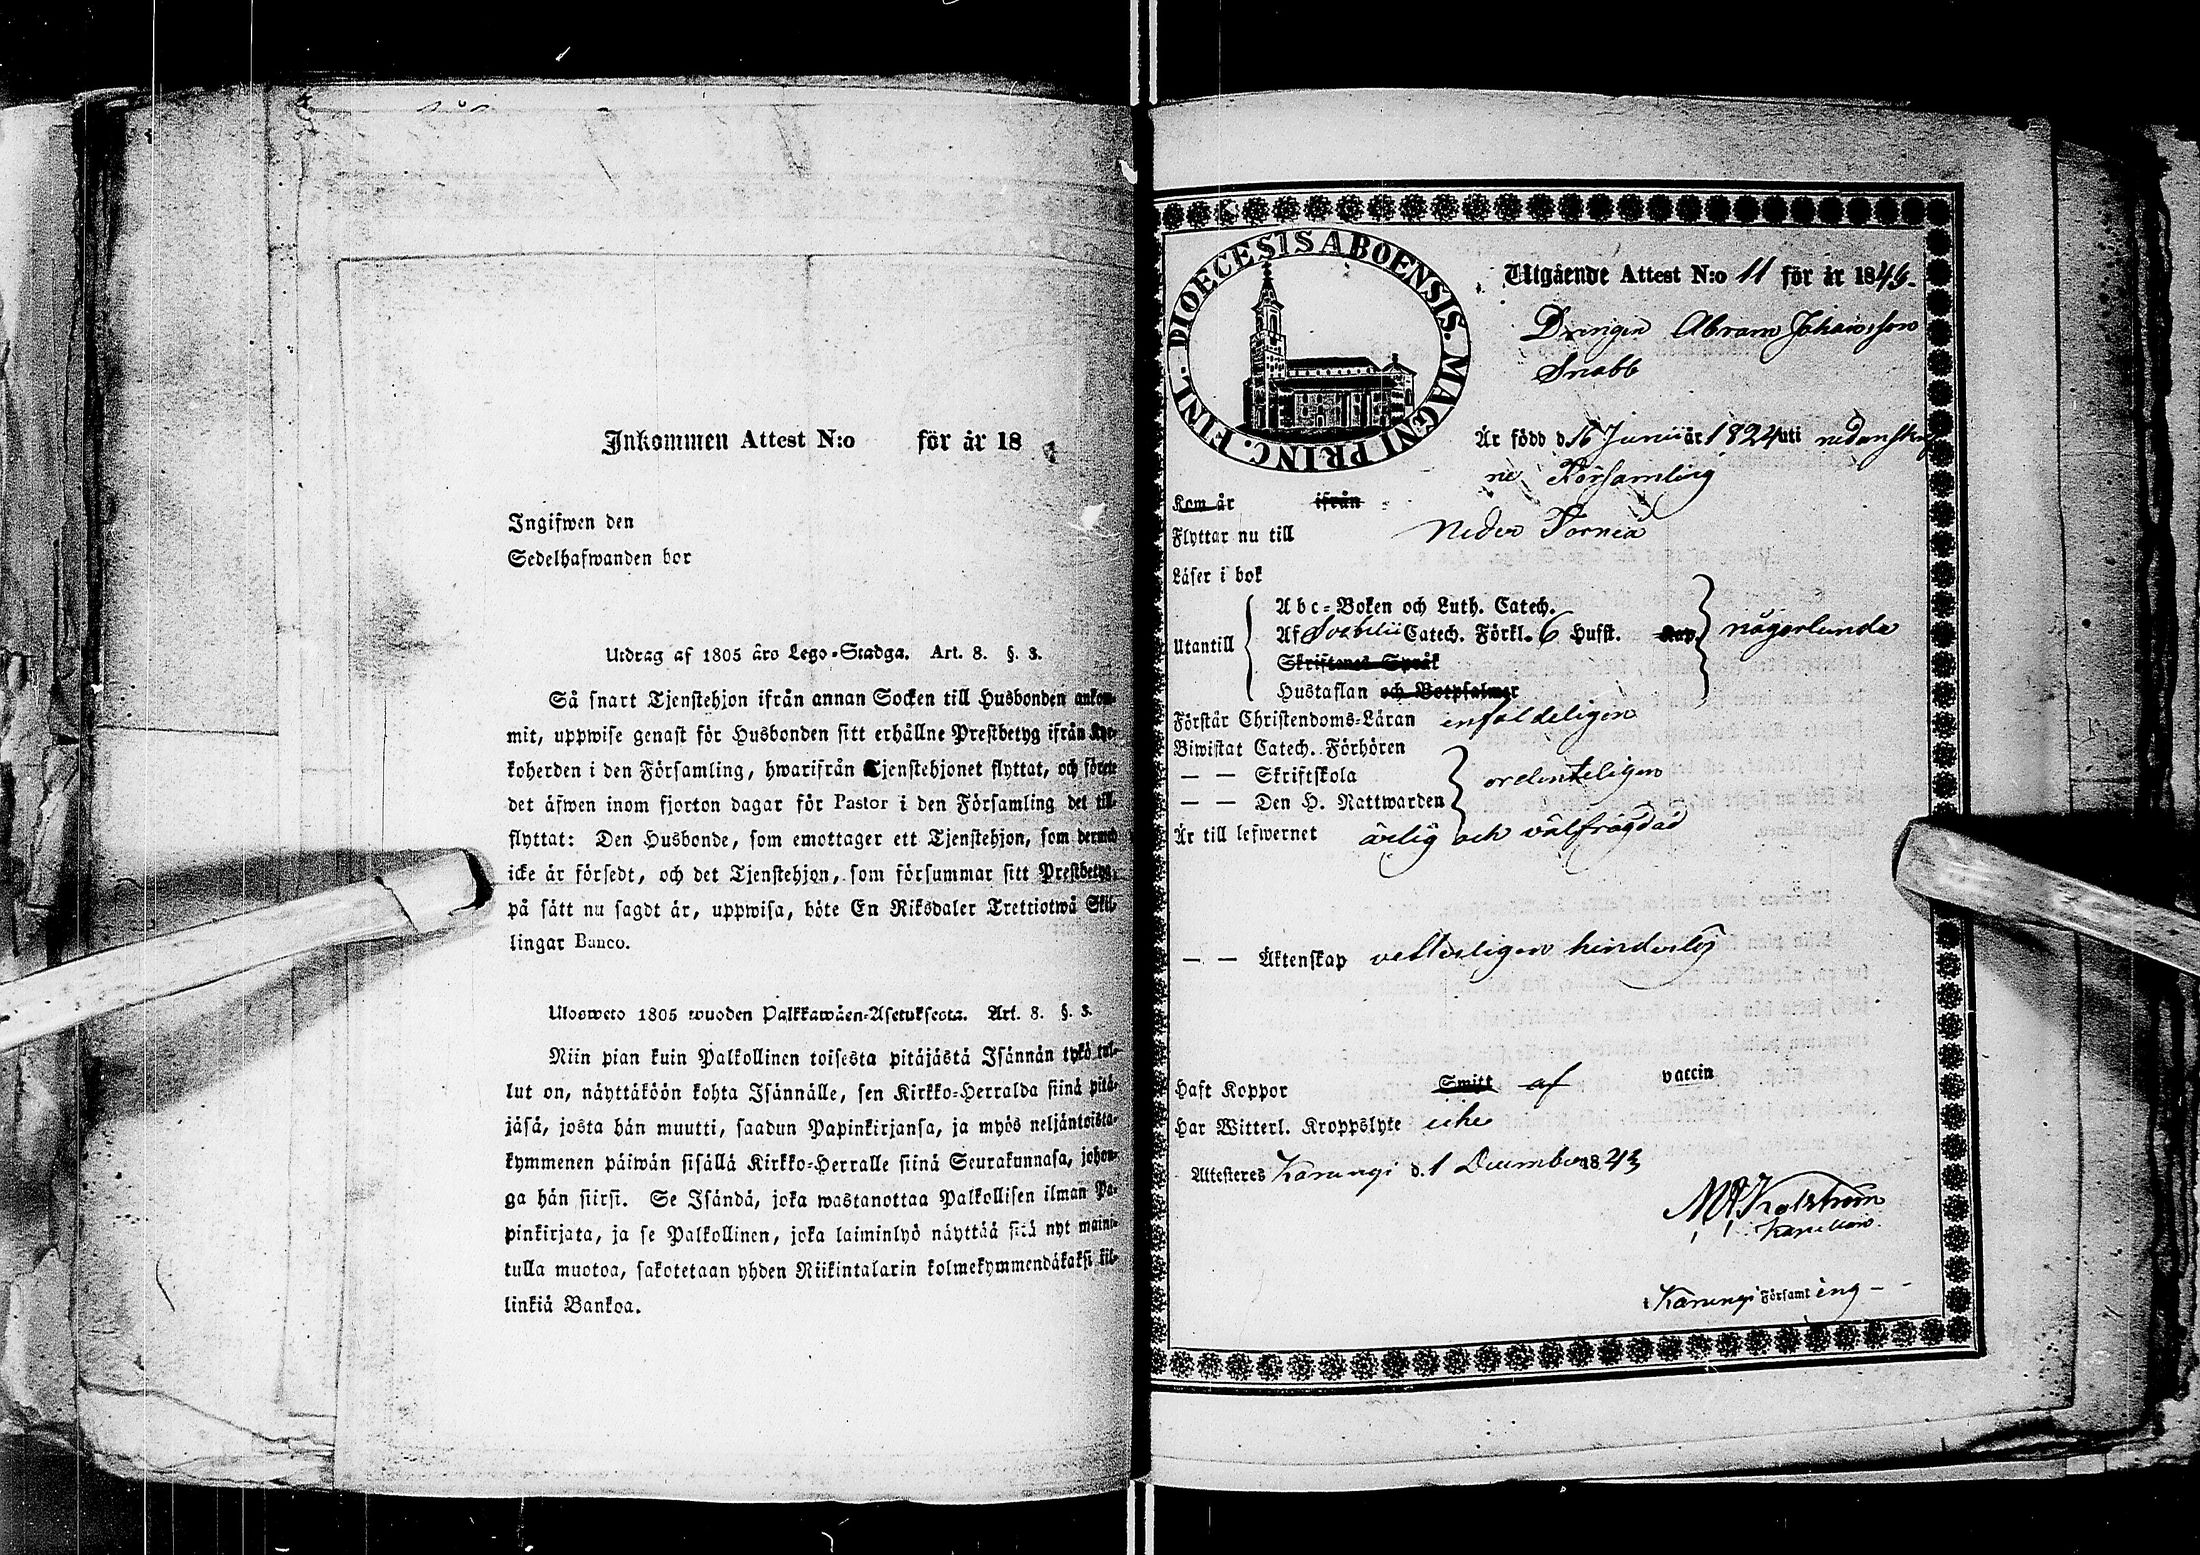 Inkommen Attest N:o för år 18
Ingifwen den
Sedelhafwanden bor
Utdrag af 1805 års Lego-Stadga. Art. 8. §. 3.
Så snart Tjenstehjon ifrån annan Socken till Husbonden ankom-
mit, uppwise genast för Husbonden sitt erhållne Prestbetyg ifrån Kyr-
koherden i den Församling, hwarifrån Tjenstehjonet flyttat, och förete
det äfwen inom fjorton dagar för Pastor i den Församling det till-
flyttat: Den Husbonde, som emottager ett Tjenstehjon, som dermed
icke är försedt, och det Tjenstehjon, som försummar sitt Prestbetyg,
på sätt nu sagdt är, uppwisa, böte En Riksdaler Trettiotwå Skil-
lingar Banco.
Ulosweto 1805 wuoden Palkkawäen-Asetuksesta. Art. 8. §. 3.
Niin pian kuin Palkollinen toisesta pitäjästä Isännän tykö tul-
lut on, näyttäköön kohta Isännälle, sen Kirkko-Herralda siinä pitä-
jäsä, josta hän muutti, saadun Papinkirjansa, ja myös neljäntoista-
kymmenen päiwän sisällä Kirkko-Herralle siinä Seurakunnasa, johon-
ga hän siirsi. Se Isändä, joka wastanottaa Palkollisen ilman Pa-
pinkirjata, ja se Palkollinen, joka laiminlyö näyttää sitä nyt maini-
tulla muotoa, sakotetaan yhden Riikintalarin kolmekymmendäkaksi kil-
linkiä Bankoa.
DIOECESIS ABOENSIS. MAGNI PRINC. FINL.
Utgående Attest N:o 11 för år 1843.
Drengen Abram Johansson
Snabb
Är född d. 16 Junii år 1824 uti nedanskref
ne Församling
Kom år ifrån
Flyttar nu till Neder Torneå
Läser i bok
Abc-Boken och Luth. Catech.
Utantill Af Svebelii Catech. Förkl. 6 Hufst. Kap. någorlunda
Skriftenes Språk
Hustaflan och Botpsalmer
Förstår Christendoms-Läran enfaldeligen
Biwistat Catech. Förhören
— — Skriftskola ordenteligen
— — Den H. Nattwarden
Är till lefwernet ärlig och välfrägdad
— — Äktenskap vetterligen hinderlös
Haft Koppor Smitt af vaccin
Har Witterl. Kroppslyte icke
Attesteras Karungi d. 1 December 1843
Karungi Församling